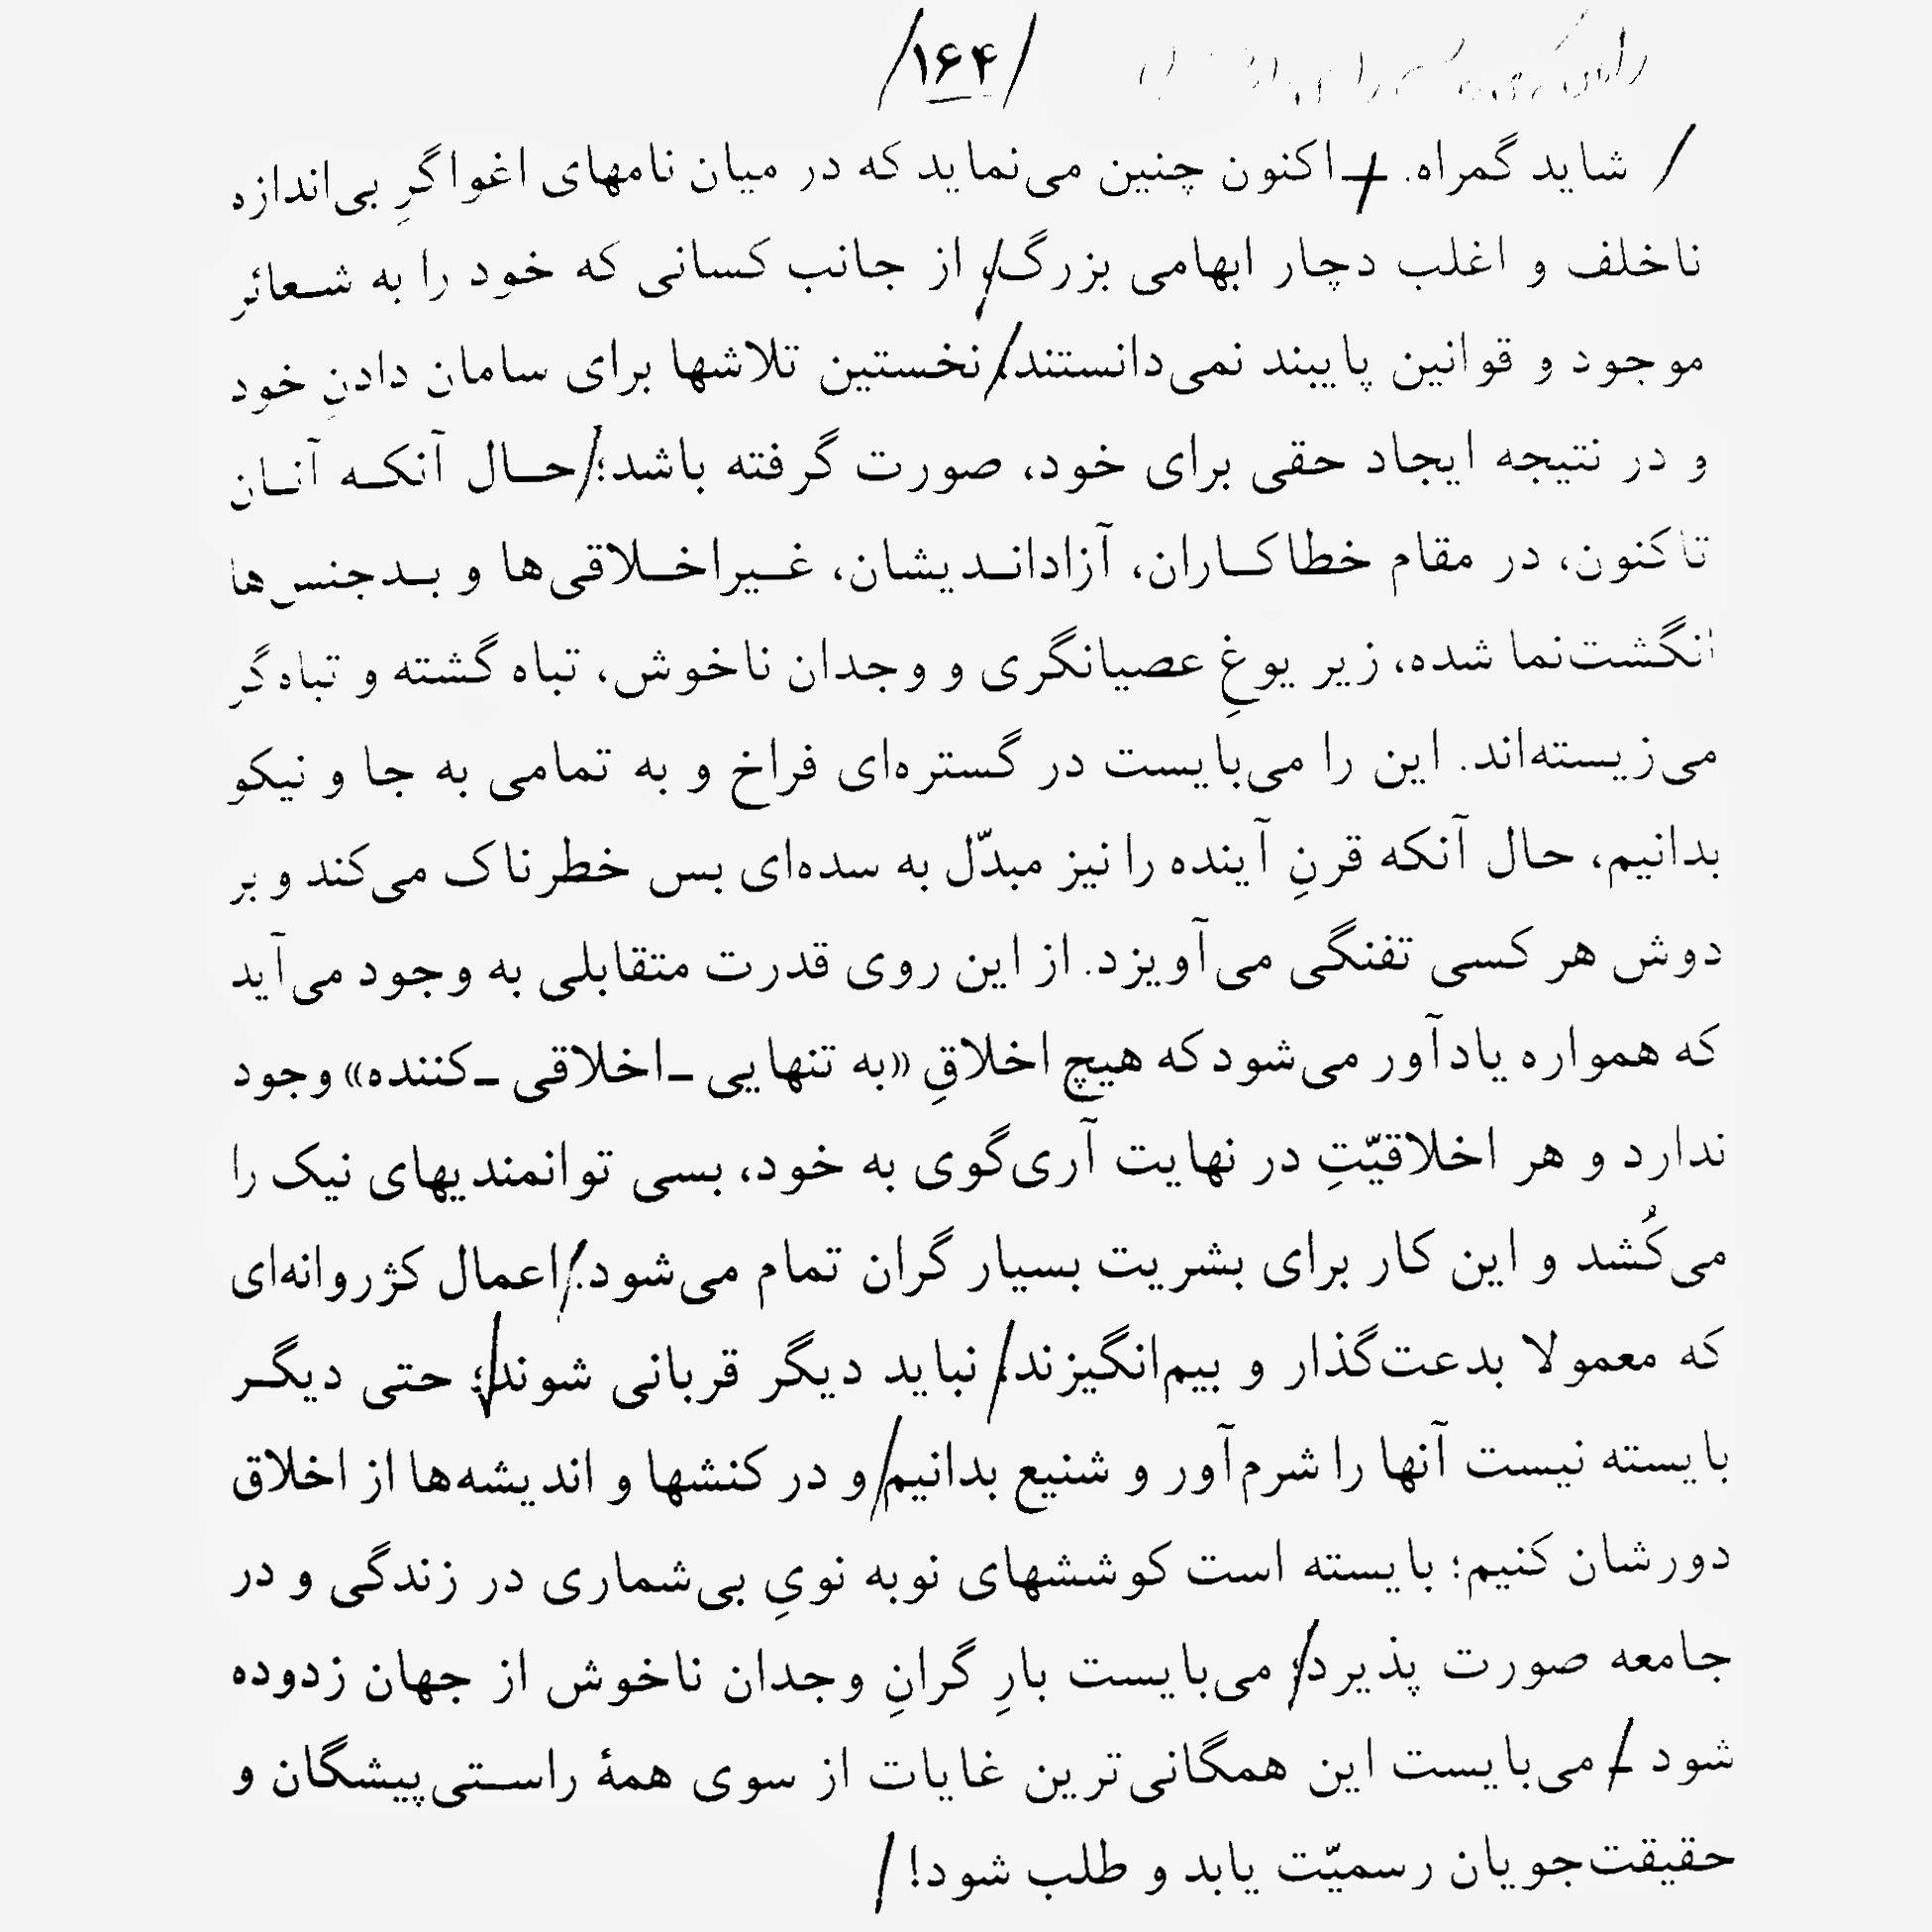 /۱۶۴/
/ شاید گمراه. ـ اکنون چنین می‌نماید که در میان نامهای اغواگرِ بی‌اندازه
ناخلف و اغلب دچار ابهامی بزرگ، از جانب کسانی که خود را به شعائر
موجود و قوانین پایبند نمی‌دانستند، نخستین تلاشها برای سامان دادنِ خود
و در نتیجه ایجاد حقی برای خود، صورت گرفته باشد؛ حال آنکه آنان
تاکنون، در مقام خطاکاران، آزاداندیشان، غیراخلاقی‌ها و بدجنس‌ها
انگشت‌نما شده، زیر یوغِ عصیانگری و وجدان ناخوش، تباه گشته و تباه‌گر
می‌زیسته‌اند. این را می‌بایست در گستره‌ای فراخ و به تمامی به جا و نیکو
بدانیم، حال آنکه قرنِ آینده را نیز مبدّل به سده‌ای بس خطرناک می‌کند و بر
دوش هر کسی تفنگی می‌آویزد. از این روی قدرت متقابلی به وجود می‌آید
که همواره یادآور می‌شود که هیچ اخلاقِ «به تنهایی ـ اخلاقی ـ کننده» وجود
ندارد و هر اخلاقیّتِ در نهایت آری‌گوی به خود، بسی توانمندیهای نیک را
می‌کُشد و این کار برای بشریت بسیار گران تمام می‌شود. اعمال کژروانه‌ای
که معمولا بدعت‌گذار و بیم‌انگیزند، نباید دیگر قربانی شوند؛ حتی دیگر
بایسته نیست آنها را شرم‌آور و شنیع بدانیم و در کنشها و اندیشه‌ها از اخلاق
دورشان کنیم؛ بایسته است کوششهای نوبه نویِ بی‌شماری در زندگی و در
جامعه صورت پذیرد؛ می‌بایست بارِ گرانِ وجدان ناخوش از جهان زدوده
شود ـ می‌بایست این همگانی‌ترین غایات از سوی همهٔ راستی‌پیشگان و
حقیقت‌جویان رسمیّت یابد و طلب شود! /